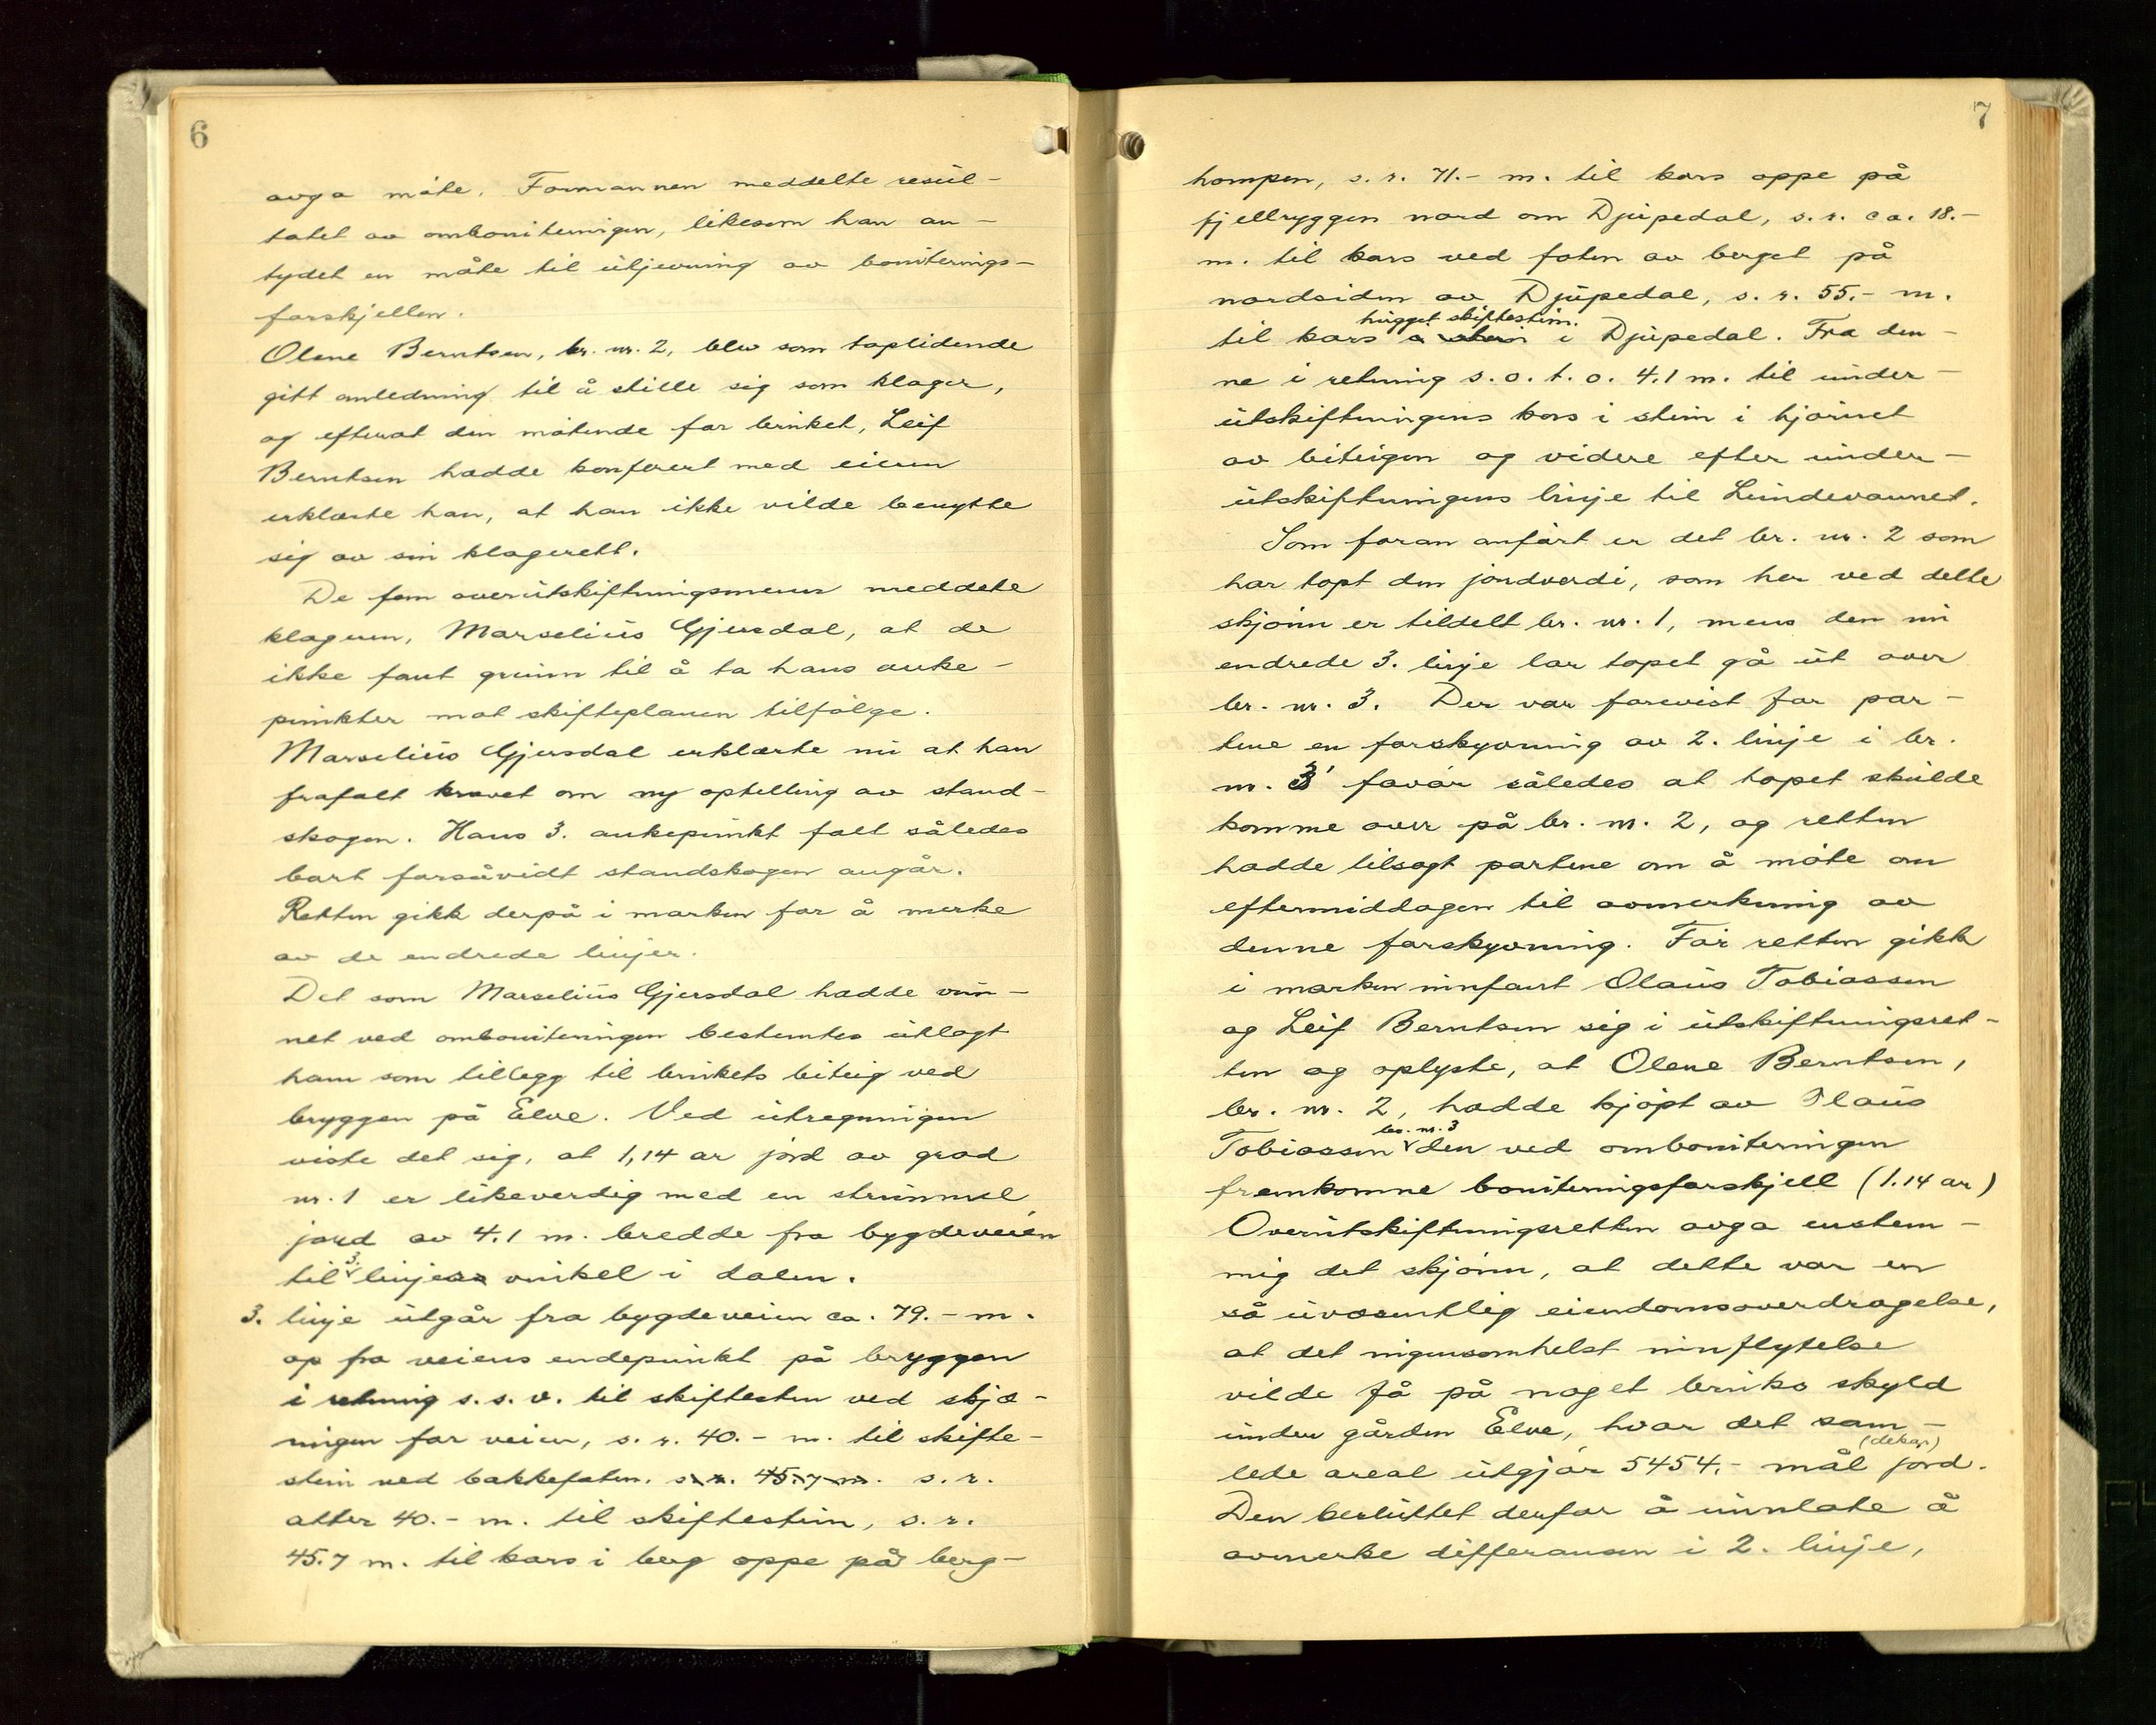 6
avga møte. Formannen meddelte resul-
tatet av omboniteringen, likesom han an-
tydet en måte til utjevning av boniterings-
forskjellen.
Olene Berntsen, br. nr. 2, blev som taplidende
gitt anledning til å stille sig som klager,
og efterat den møtende for bruket, Leif
Berntsen hadde konferert med eieren
erklærte han, at han ikke vilde benytte
sig av sin klagerett.
De fem overutskiftningsmenn meddelte
klageren, Marselius Gjersdal, at de
ikke fant grunn til å ta hans anke-
punkter mot skifteplanen tilfølge.
Marselius Gjersdal erklærte nu at han
frafalt kravet om ny optelling av stand-
skogen. Hans 3. ankepunkt falt således
bort forsåvidt standskogen angår.
Retten gikk derpå i marken for å merke
av de endrede linjer.
Det som Marselius Gjersdal hadde vun-
net ved omboniteringen bestemtes utlagt
ham som tillegg til brukets biteig ved
bryggen på Elve. Ved utregningen
viste det sig, at 1,14 ar jord av grad
nr. 1 er likeverdig med en strimmel
jord av 4.1 m. bredde fra bygdeveien
3.
til linjens vinkel i dalen.
3. linje utgår fra bygdeveien ca. 79.- m.
op fra veiens endepunkt på bryggen
i retning s.s.v. til skiftesten ved skjæ-
ringen for veien, s. r. 40.- m. til skifte-
stein ved bakkefoten. s. r. 45.7 m. s. r.
atter 40.- m. til skiftestein, s. r.
45.7 m. til kors i berg oppe på berg-
7
hompen, s. r. 71.- m. til kors oppe på
fjellryggen nord om Djupedal, s. r. ca. 18.-
m. til kors ved foten av berget på
nordsiden av Djupedal, s. r. 55.- m.
hugget skiftestein.
til kors i Djupedal. Fra den-
ne i retning s. o. t. o. 4.1 m. til under-
utskiftningens kors i stein i hjørnet
av biteigen og videre efter under-
utskiftningens linje til Lundevannet.
Som foran anført er det br. nr. 2 som
har tapt den jordverdi, som her ved dette
skjønn er tildelt br. nr. 1, mens den nu
endrede 3. linje lar tapet gå ut over
br. nr. 3. Der var forevist for par-
tene en forskyvning av 2. linje i br.
nr. 3' favør således at tapet skulde
komme over på br. nr. 2, og retten
hadde tilsagt partene om å møte om
eftermiddagen til avmerkning av
denne forskyvning. Før retten gikk
i marken innfant Olaus Tobiassen
og Leif Berntsen sig i utskiftningsret-
ten og oplyste, at Olene Berntsen,
br. nr. 2, hadde kjøpt av Olaus
br. nr. 3
Tobiassen den ved omboniteringen
fremkomne boniteringsforskjell (1.14 ar)
Overutskiftningsretten avga enstem-
mig det skjønn, at dette var en
så uvæsentlig eiendomsoverdragelse,
at det ingensomhelst innflytelse
vilde få på noget bruks skyld
under gården Elve, hvor det sam-
(dekar)
lede areal utgjør 5454.- mål jord.
Den besluttet derfor å unnlate å
avmerke differansen i 2. linje,